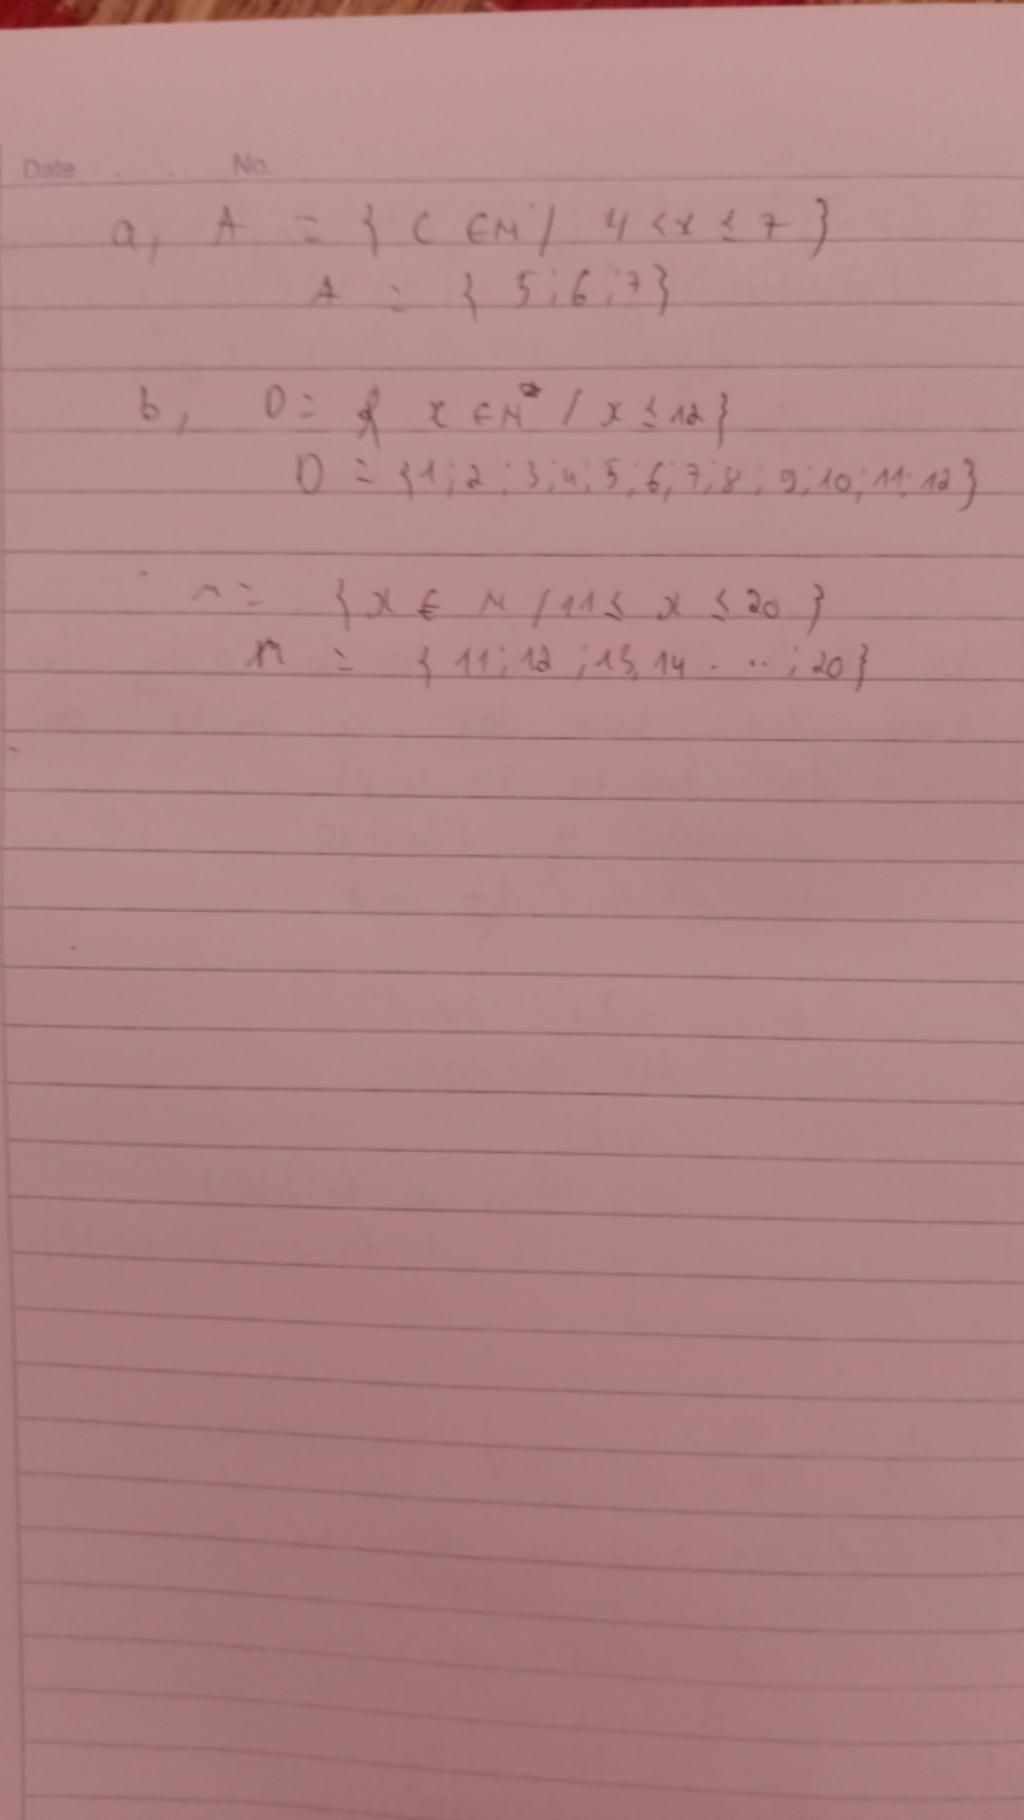 Date . . No.
a, A = { C ∈ N / 4 < x ≤ 7 }
A = { 5 ; 6 ; 7 }
b, D = { x ∈ N* / x ≤ 12 }
D = { 1 ; 2 ; 3 ; 4 ; 5 ; 6 ; 7 ; 8 ; 9 ; 10 ; 11 ; 12 }
= { x ∈ N / 11 ≤ x ≤ 20 }
= { 11 ; 12 ; 13, 14 . .. ; 20 }